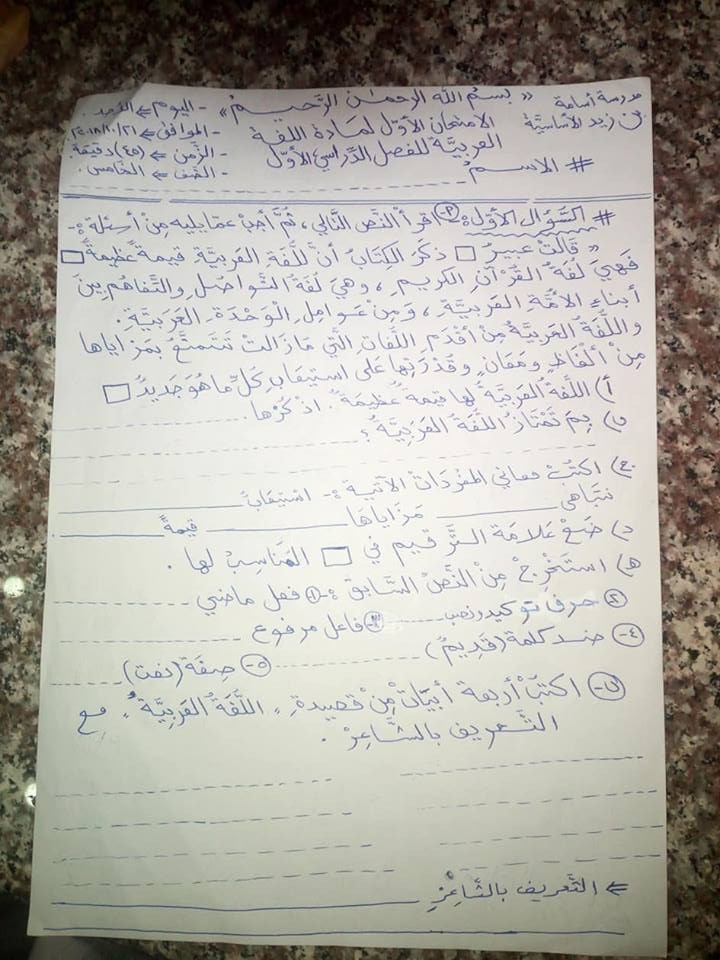 مدرسة أسامة « بسم الله الرحمن الرحيم » - اليوم ⇐ الأحد.
بن زيد الأساسية الامتحان الأول لمادة اللغة - الموافق ⇐ ٢٠١٨/١٠/٢١
العربية للفصل الدراسي الأول - الزمن ⇐ (٤٥) دقيقة.
# الاسم - الصف ⇐ الخامس.
# السؤال الأول:- ٢- اقرأ النص التالي، ثم أجب عما يليه من أسئلة:-
« قالت عبير □ ذكر الكتاب أن للغة العربية قيمة عظيمة □
فهي لغة القرآن الكريم، وهي لغة التواصل والتفاهم بين
أبناء الأمة العربية، ومن عوامل الوحدة العربية.
واللغة العربية من أقدم اللغات التي ما زالت تتمتع بمزاياها
من ألفاظ ومعان وقدرتها على استيعاب كل ما هو جديد □
أ) اللغة العربية لها قيمة عظيمة. اذكرها
ب) بم تمتاز اللغة العربية؟
ج) اكتب معاني المفردات الآتية:- استيعاب
نتباهى مزاياها قيمة
د) ضع علامة الترقيم في □ المناسب لها.
هـ) استخرج من النص السابق:- ١- فعل ماضي
٢- حرف توكيد ونصب ٣- فاعل مرفوع
٤- ضد كلمة (قديم) ٥- صفة (نعت)
ب- اكتب أربعة أبيات من قصيدة " اللغة العربية " مع
التعريف بالشاعر.
⇐ التعريف بالشاعر